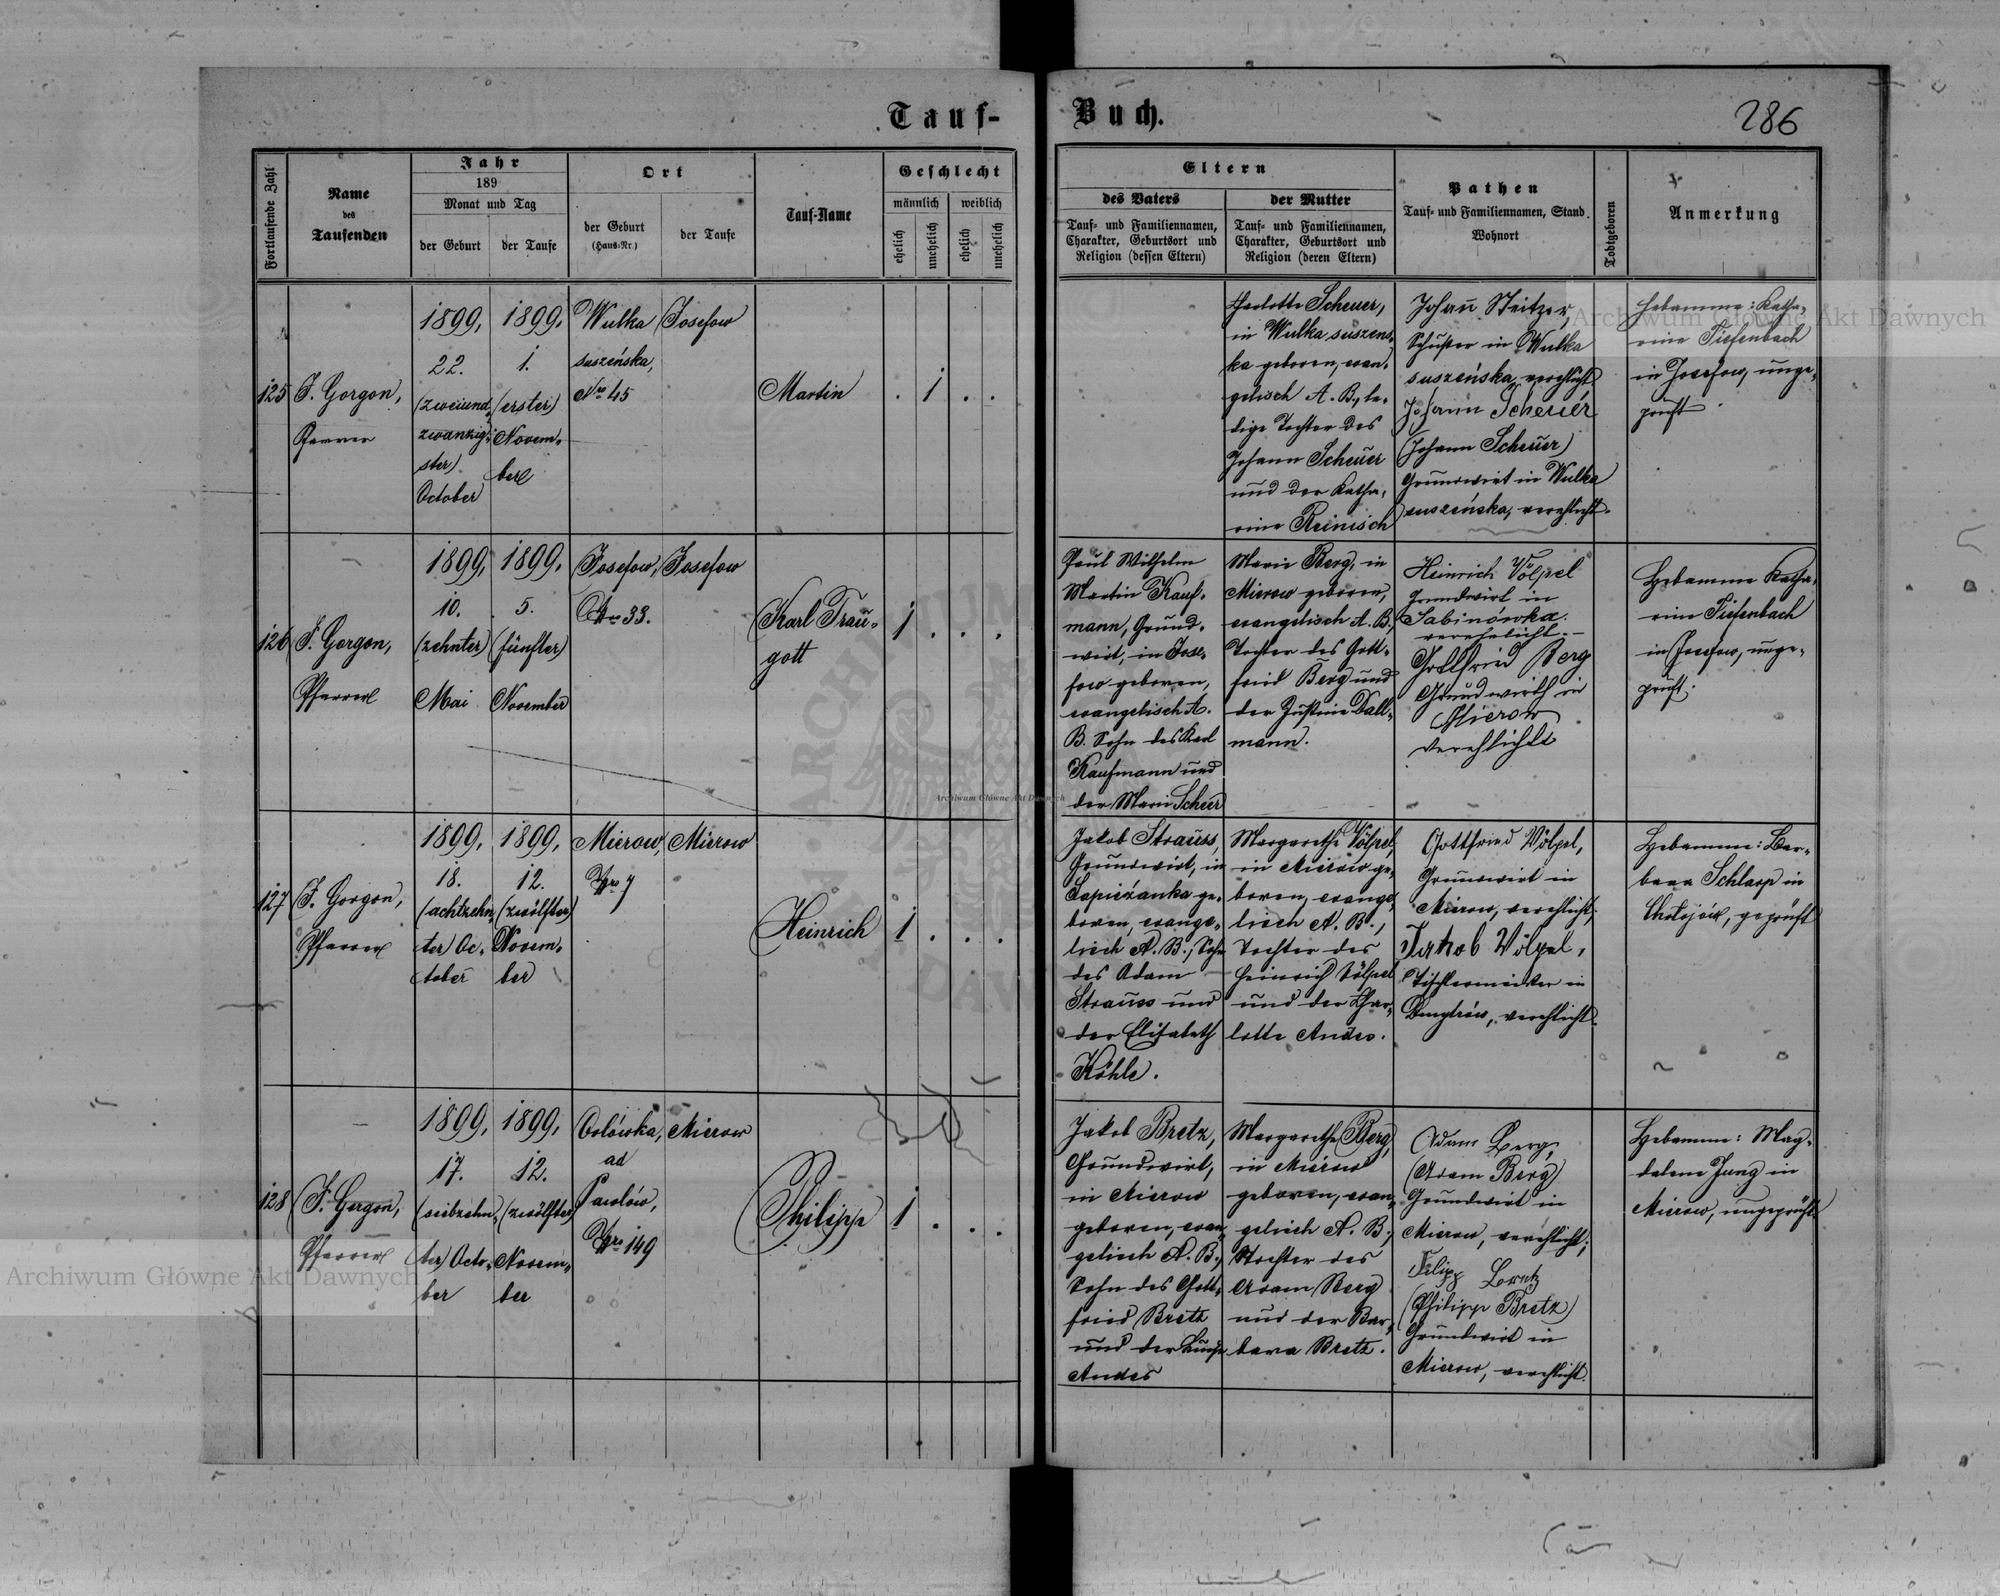 Tauf-Buch.
286
Fortlaufende Zahl
Name
des
Taufenden
Jahr
189
Monat und Tag
der Geburt
der Taufe
Ort
der Geburt
(Haus-Nr.)
der Taufe
Tauf-Name
Geschlecht
männlich
weiblich
ehelich
unehelich
ehelich
unehelich
Eltern
des Vaters
Tauf- und Familiennamen,
Charakter, Geburtsort und
Religion (dessen Eltern)
der Mutter
Tauf- und Familiennamen,
Charakter, Geburtsort und
Religion (deren Eltern)
Pathen
Tauf- und Familiennamen, Stand
Wohnort
Todtgeboren
Anmerkung
125
F. Gorgon,
Pfarrer
1899,
22.
(zweiund-
zwanzig-
ster)
October
1899,
1.
(erster)
Novem-
ber
Wulka
suszeńska,
Nro 45
Josefow
Martin
. 1 . .
Charlotte Scheuer,
in Wulka suszens-
ka geboren, evan-
gelisch A. B., le-
dige Tochter des
Johann Scheuer
und der Katha-
rine Reinisch
Johann Steitzer,
Schuster in Wulka
suszeńska, verehlicht
Johann Scheuer
(Johann Scheuer)
Grundwirt in Wulka
suszeńska, verehlicht.
Hebamme: Katha-
rine Tiefenbach
in Josefow, unge-
prüft
126
F. Gorgon,
Pfarrer
1899,
10.
(zehnter)
Mai
1899,
5.
(fünfter)
November
Josefow,
Nro 33.
Josefow
Karl Trau-
gott
1 . . .
Paul Wilhelm
Martin Kauf-
mann, Grund-
wirt, in Jose-
fow geboren,
evangelisch A.
B. Sohn des Karl
Kaufmann und
der Marie Scheer
Marie Berg, in
Mierow geboren,
evangelisch A. B.,
Tochter des Gott-
fried Berg und
der Justine Dall-
mann.
Heinrich Völpel
Grundwirt in
Sabinówka.
verehelicht.-
Gottfried Berg
Grundwirth in
Mierow
verehlicht
Hebamme Katha-
rine Tiefenbach
in Josefow, unge-
prüft.
127
F. Gorgon,
Pfarrer
1899,
18.
(achtzehn-
ter) Oc-
tober
1899,
12.
(zwölfter)
Novem-
ber
Mierow,
Nro 7
Mierow
Heinrich
1 . . .
Jakob Strauss,
Grundwirt, in
Sapieżanka ge-
boren, evange-
lisch A. B., Sohn
des Adam
Strauss und
der Elisabeth
Köhle.
Margarethe Völpel,
in Mierow ge-
boren, evange-
lisch A. B.,
Tochter des
Heinrich Völpel
und der Char-
lotte Andes.
Gottfried Völpel,
Grundwirt in
Mierow, verehlicht,
Jakob Völpel,
Tischlermeister in
Dmytrów, verehlicht.
Hebamme: Bar-
bara Schlarp in
Chołojów, geprüft
128
F. Gorgon,
Pfarrer
1899,
17.
(siebzehn-
ter) Octo-
ber
1899,
12.
(zwölfter)
Novem-
ber
ad
Pawłów,
Nro 149
Mierow
Philipp
1 . . .
Jakob Bretz,
Grundwirt,
in Mierow
geboren, evan-
gelisch A. B.,
Sohn des Gott-
fried Bretz
und der
Andes
Margarethe Berg,
in Mierow
geboren, evan-
gelisch A. B.,
Tochter des
Adam Berg
und der Bar-
bara Bretz.
Adam Berg,
(Adam Berg)
Grundwirt in
Mierow, verehlicht;
Filipp
(Philipp Bretz)
Grundwirt in
Mierow, verehlicht.
Hebamme: Mag-
dalena Jung in
Mierow, ungeprüft.
Archiwum Główne Akt Dawnych
Archiwum Główne Akt Dawnych
Archiwum Główne Akt Dawnych